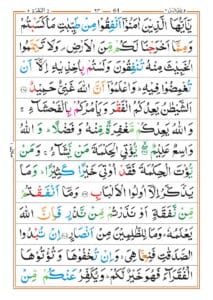 64
يٰۤاَيُّهَا الَّذِيْنَ اٰمَنُوْۤا اَنْفِقُوْا مِنْ طَيِّبٰتِ مَا كَسَبْتُمْ
وَمِمَّاۤ اَخْرَجْنَا لَكُمْ مِّنَ الْاَرْضِ وَلَا تَيَمَّمُوا
الْخَبِيْثَ مِنْهُ تُنْفِقُوْنَ وَلَسْتُمْ بِاٰخِذِيْهِ اِلَّاۤ اَنْ
تُغْمِضُوْا فِيْهِ وَاعْلَمُوْۤا اَنَّ اللّٰهَ غَنِيٌّ حَمِيْدٌ
اَلشَّيْطٰنُ يَعِدُكُمُ الْفَقْرَ وَيَاْمُرُكُمْ بِالْفَحْشَآءِ
وَاللّٰهُ يَعِدُكُمْ مَّغْفِرَةً مِّنْهُ وَفَضْلًا وَاللّٰهُ
وَاسِعٌ عَلِيْمٌ يُّؤْتِي الْحِكْمَةَ مَنْ يَّشَآءُ وَمَنْ
يُّؤْتَ الْحِكْمَةَ فَقَدْ اُوْتِيَ خَيْرًا كَثِيْرًا وَمَا
يَذَّكَّرُ اِلَّاۤ اُولُوا الْاَلْبَابِ وَمَاۤ اَنْفَقْتُمْ
مِّنْ نَّفَقَةٍ اَوْ نَذَرْتُمْ مِّنْ نَّذْرٍ فَاِنَّ اللّٰهَ
يَعْلَمُهٗ وَمَا لِلظّٰلِمِيْنَ مِنْ اَنْصَارٍ اِنْ تُبْدُوا
الصَّدَقٰتِ فَنِعِمَّا هِيَ وَاِنْ تُخْفُوْهَا وَتُؤْتُوْهَا
الْفُقَرَآءَ فَهُوَ خَيْرٌ لَّكُمْ وَيُكَفِّرُ عَنْكُمْ مِّنْ